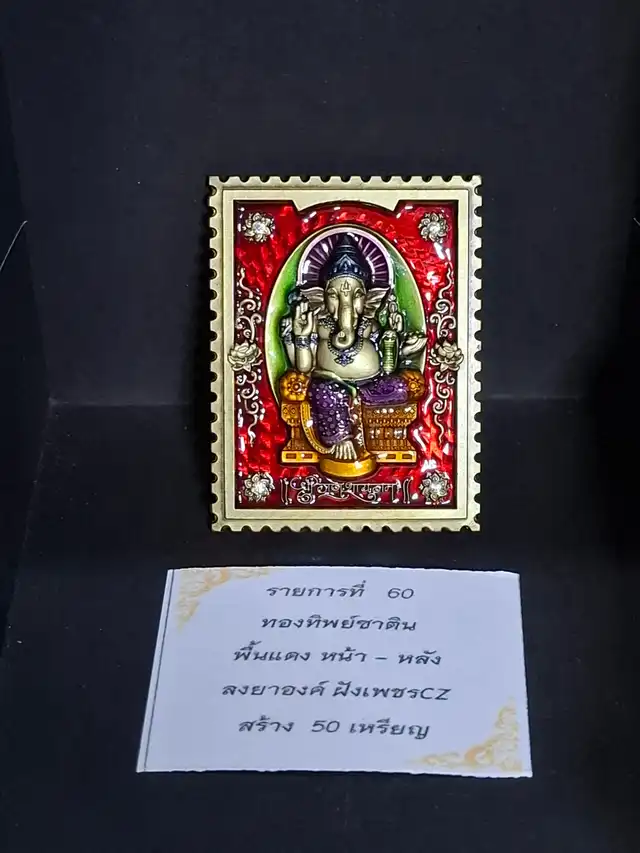 รายการที่ 60
ทองทิพย์ซาติน
พื้นแดง หน้า - หลัง
ลงยาองค์ ฝังเพชรCZ
สร้าง 50 เหรียญ